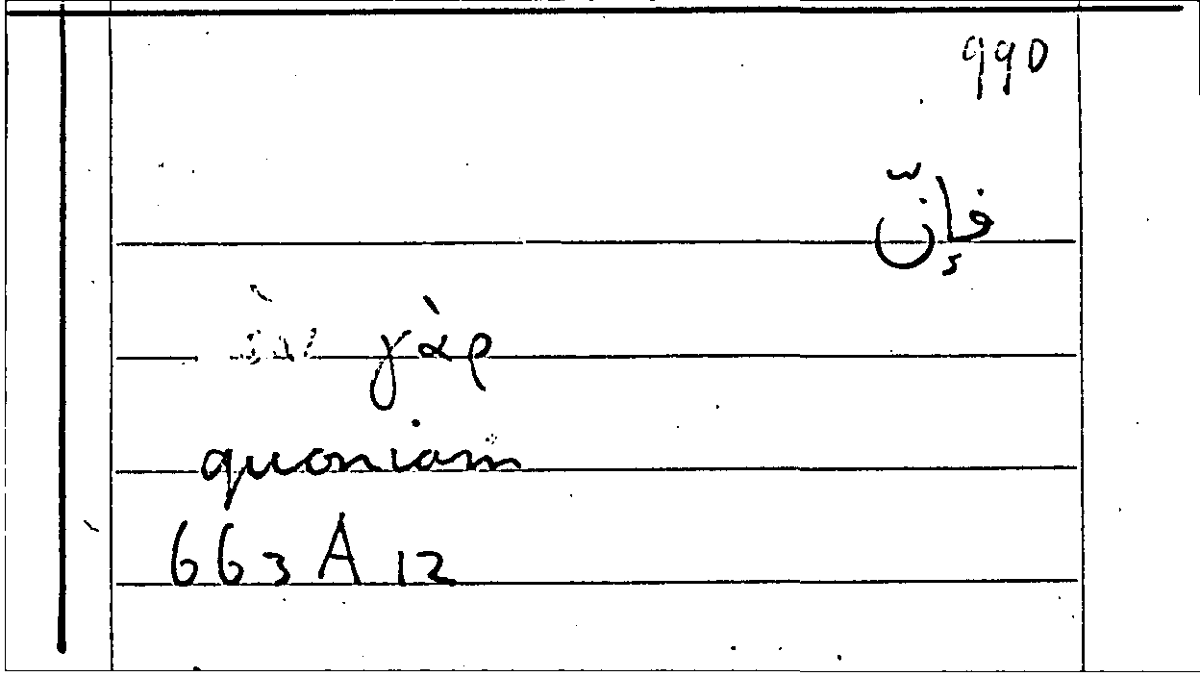 990
فإنّ
γὰρ
quoniam
663 A 12